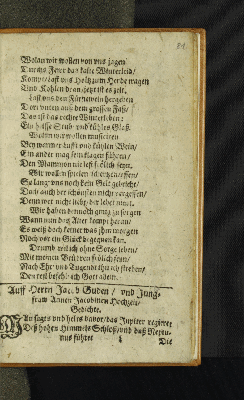 81
Wolan wir wollen von uns jagen
Durchs Fewr das kalte Winterleid/
Kompt last uns Holtz zum Herde tragen
Und Kohlen dran/jetzt ist es zeit.
Last uns den Fürnewein hergeben
Dort unten auß dem grossen Faß/
Das ist das rechte Winterleben:
Ein heisse Stub und kühles Glaß.
Wolan wir wollen musiciren
Bey warmer Lufft und kühlen Wein/
Ein ander mag sein klagen führen/
Den Mammon nie lest frölich seyn.
Wir wollen spielen/schertzen/essen/
So lang uns noch kein Gelt gebricht/
Doch auch der schönsten nicht vergessen/
Denn wer nicht liebt/der lebet nicht.
Wir haben dennoch gnug zu sorgen
Wann nun das Alter kompt heran/
Es weiß doch keiner was jhm morgen
Noch vor ein Glück begegnen kan.
Drumb wil ich ohne Sorge leben/
Mit meinen Brüdern frölich seyn/
Nach Ehr und Tugend thu ich streben/
Den rest befehl ich Gott allein.
Auff Herrn Jacob Guden / und Jung-
fraw Annen Jacobinen Hochzeit/
Gedichte.
MAn sagts und helts davor/das Jupiter regieret
Deß hohen Himmels Schloß/und daß Neptu-
nus führet
Die